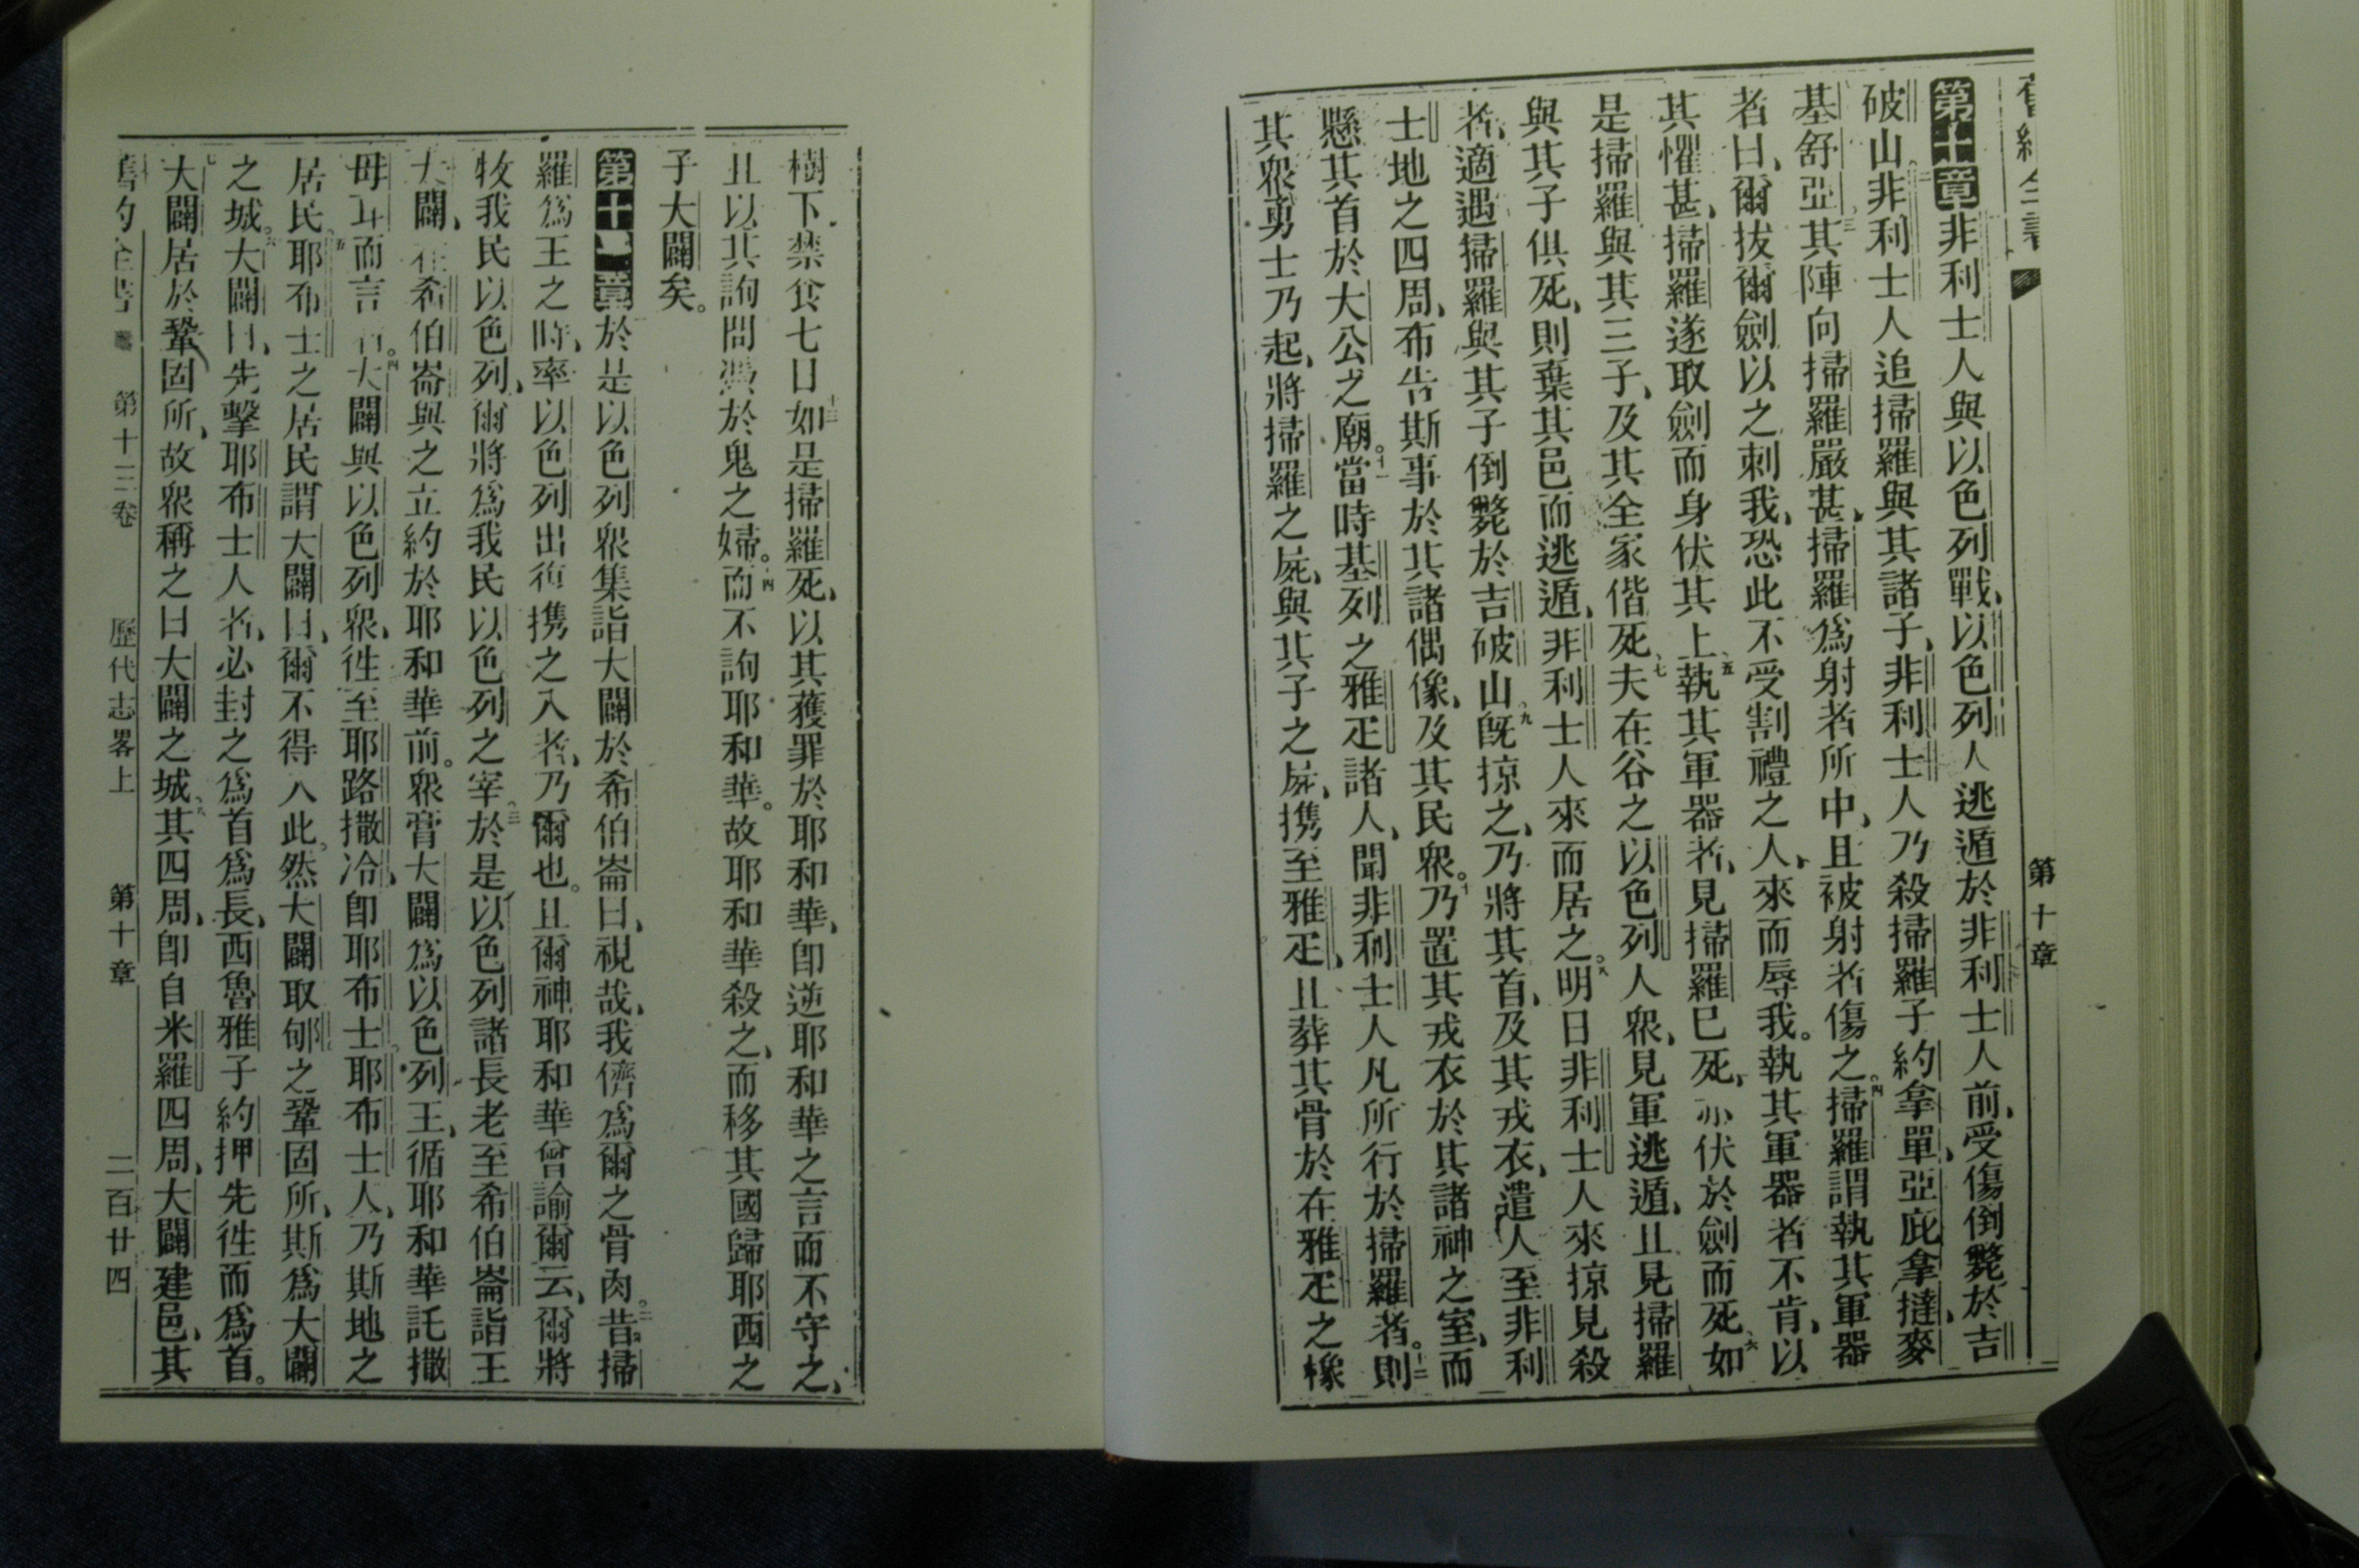 舊約全書 第十章
第十章非利士人與以色列戰、以色列人逃遁於非利士人前、受傷倒斃於吉
破山。二非利士人追掃羅與其諸子、非利士人乃殺掃羅子約拿單、亞庇拿撻、麥
基舒亞。三其陣向掃羅嚴甚、掃羅爲射者所中、且被射者傷之。四掃羅謂執其軍器
者曰、爾拔爾劍以之刺我、恐此不受割禮之人、來而辱我。執其軍器者不肯、以
其懼甚、掃羅遂取劍而身伏其上。五執其軍器者、見掃羅已死、亦伏於劍而死。六如
是掃羅與其三子、及其全家偕死。七夫在谷之以色列人眾、見軍逃遁、且見掃羅
與其子俱死、則棄其邑而逃遁、非利士人來而居之。八明日非利士人來掠見殺
者、適遇掃羅與其子倒斃於吉破山。九旣掠之、乃將其首、及其戎衣、遣人至非利
士地之四周、布告斯事於其諸偶像、及其民眾。十乃置其戎衣於其諸神之室、而
懸其首於大公之廟。十一當時基列之雅疋諸人、聞非利士人凡所行於掃羅者。十二則
其眾勇士乃起、將掃羅之屍、與其子之屍、携至雅疋、且葬其骨於在雅疋之橡
樹下、禁食七日。十三如是掃羅死、以其獲罪於耶和華、卽逆耶和華之言而不守之、
且以其詢問憑於鬼之婦。十四而不詢耶和華。故耶和華殺之、而移其國歸耶西之
子大闢矣。
第十一章於是以色列眾集詣大闢於希伯崙曰、視哉、我儕爲爾之骨肉。二昔掃
羅爲王之時、率以色列出復携之入者、乃爾也。且爾神耶和華曾諭爾云、爾將
牧我民以色列、爾將爲我民以色列之宰。三於是以色列諸長老至希伯崙詣王
大闢、在希伯崙與之立約於耶和華前。眾膏大闢爲以色列王、循耶和華託撒
母耳而言者。四大闢與以色列眾、徃至耶路撒冷、卽耶布士、耶布士人、乃斯地之
居民。五耶布士之居民謂大闢曰、爾不得入此。然大闢取郇之鞏固所、斯爲大闢
之城。六大闢曰、先擊耶布士人者、必封之爲首爲長、西魯雅子約押先徃而爲首。
七大闢居於鞏固所、故眾稱之曰大闢之城。八其四周、卽自米羅四周、大闢建邑、其
舊約全書 第十三卷 歷代志畧上 第十章 二百廿四